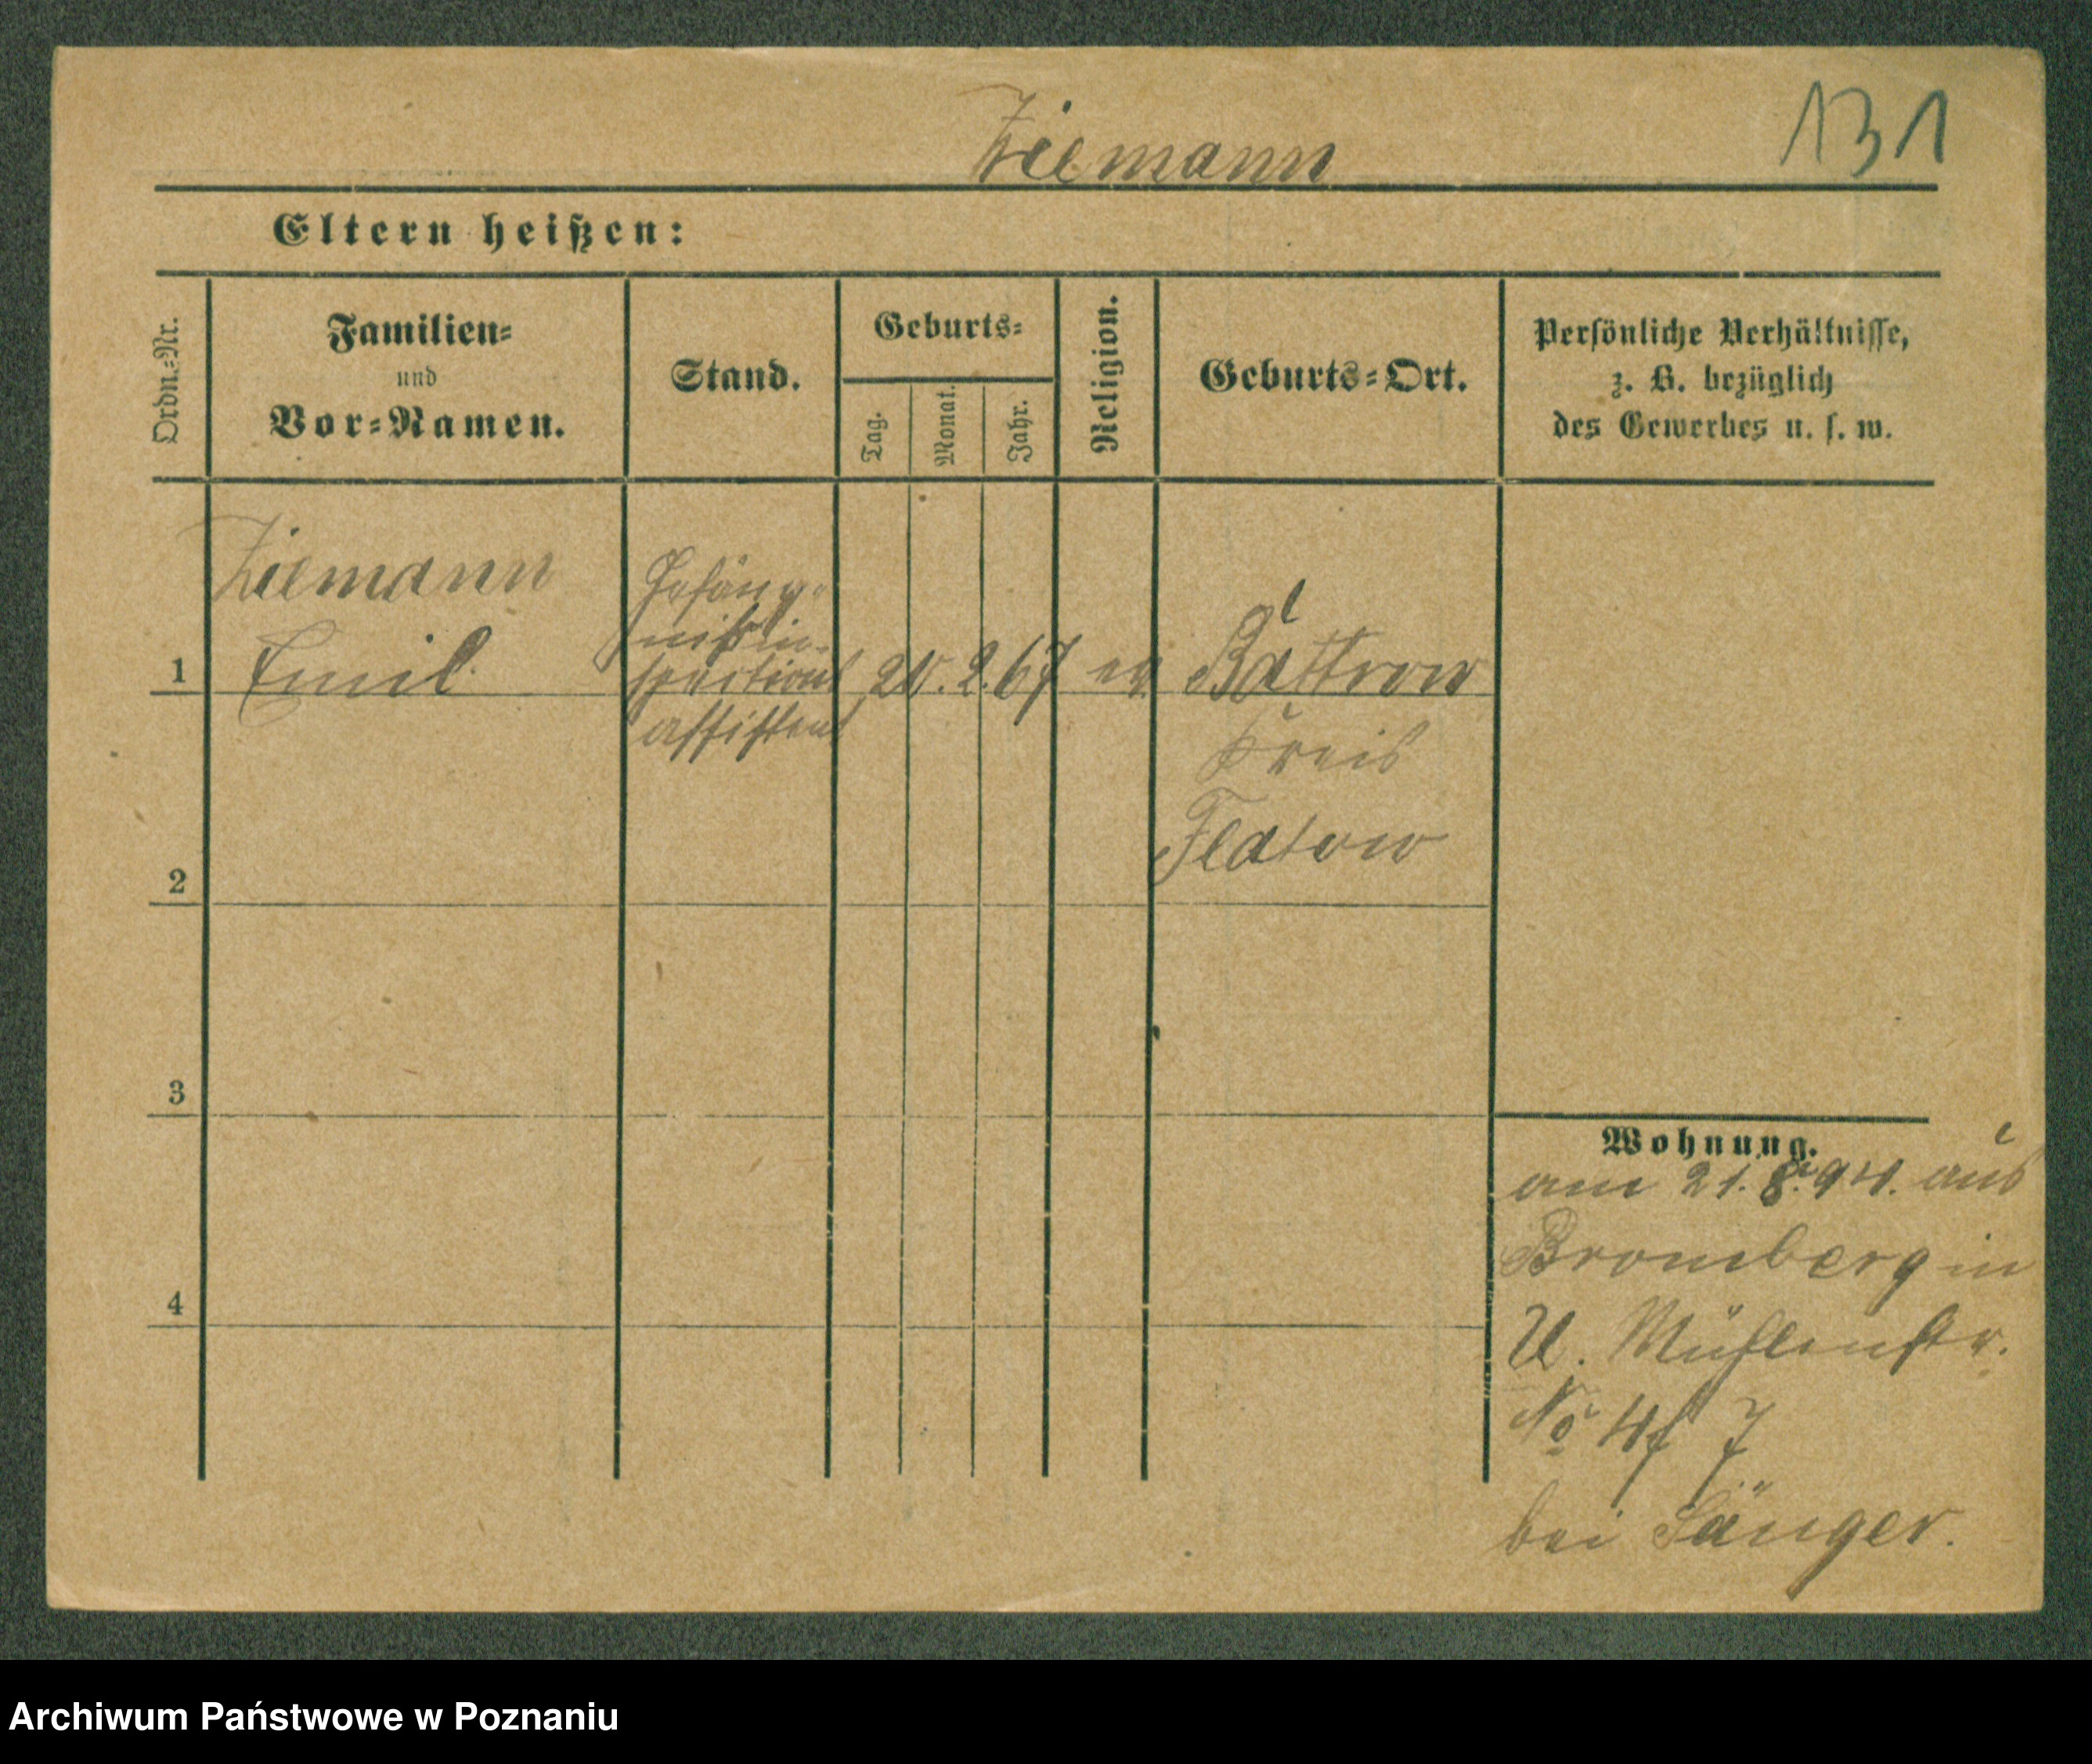 131
Ziemann
Eltern heißen:
Ordn.=Nr.
Familien=
und
Vor=Namen.
Stand.
Geburts=
Tag.
Monat.
Jahr.
Religion.
Geburts=Ort.
Persönliche Verhältnisse,
z. B. bezüglich
des Gewerbes u. s. w.
Ziemann
Emil
Gefäng-
nißin-
spections
assistent
1
20. 2. 67 ev. Battrow
Kreis
Flatow
2
3
4
Wohnung.
am 21. 8. 94. aus
Bromberg in
U. Mühlenstr.
No 7
bei Sänger.
Archiwum Państwowe w Poznaniu